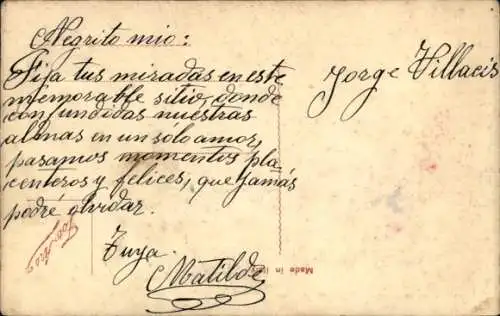 Negrito mio:
Fija tus miradas en este
memorable sitio, donde
confundidas nuestras
almas en un solo amor,
pasamos momentos pla-
centeros y felices, que jamás
podré olvidar.
Tuya.
Matilde
Jorge Villacis
Made in